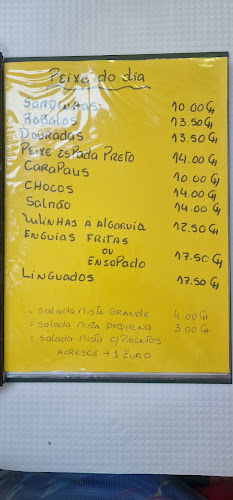 Peixe do dia
SARDINHAS 10.00 €
ROBALOS 13.50 €
DOURADAS 13.50 €
PEIXE ESPADA PRETO 14.00 €
CARAPAUS 10.00 €
CHOCOS 14.00 €
SALMÃO 14.00 €
LULINHAS A ALGARVIA 12.50 €
ENGUIAS FRITAS
OU 17.50 €
ENSOPADO
LINGUADOS 17.50 €
= SALADA MISTA GRANDE 4.00 €
= SALADA MISTA PEQUENA 3.00 €
= SALADA MISTA C/PIMENTOS
ACRESCE + 1 EURO